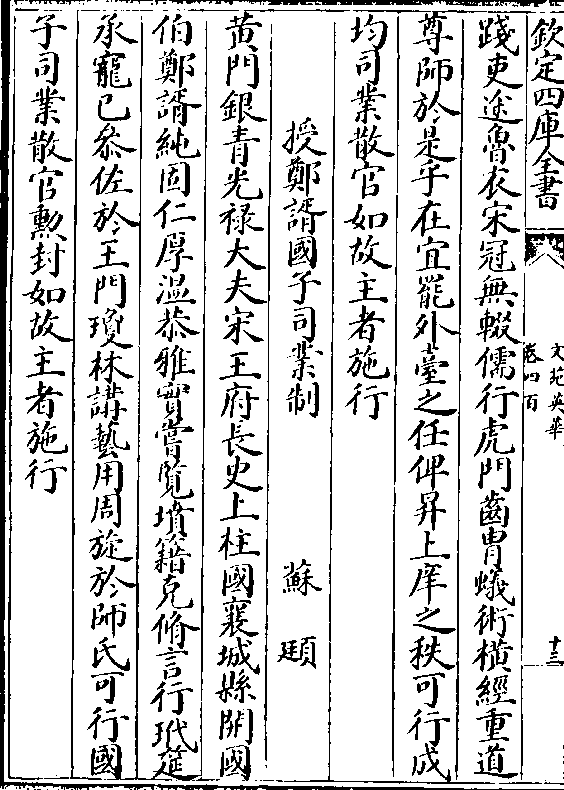 欽定四庫全書
文苑英華
卷四百
十三
踐吏途魯衣宋冠無輟儒行虎門齒胄蟻術橫經重道
尊師於是乎在宜罷外臺之任俾昇上庠之秩可行成
均司業散官如故主者施行
授鄭諝國子司業制
蘇頲
黃門銀青光祿大夫宋王府長史上柱國襄城縣開國
伯鄭諝純固仁厚温恭雅實嘗覧墳籍克脩言行玳筵
承寵已叅佐於王門瓊林講藝用周旋於師氏可行國
子司業散官勲封如故主者施行